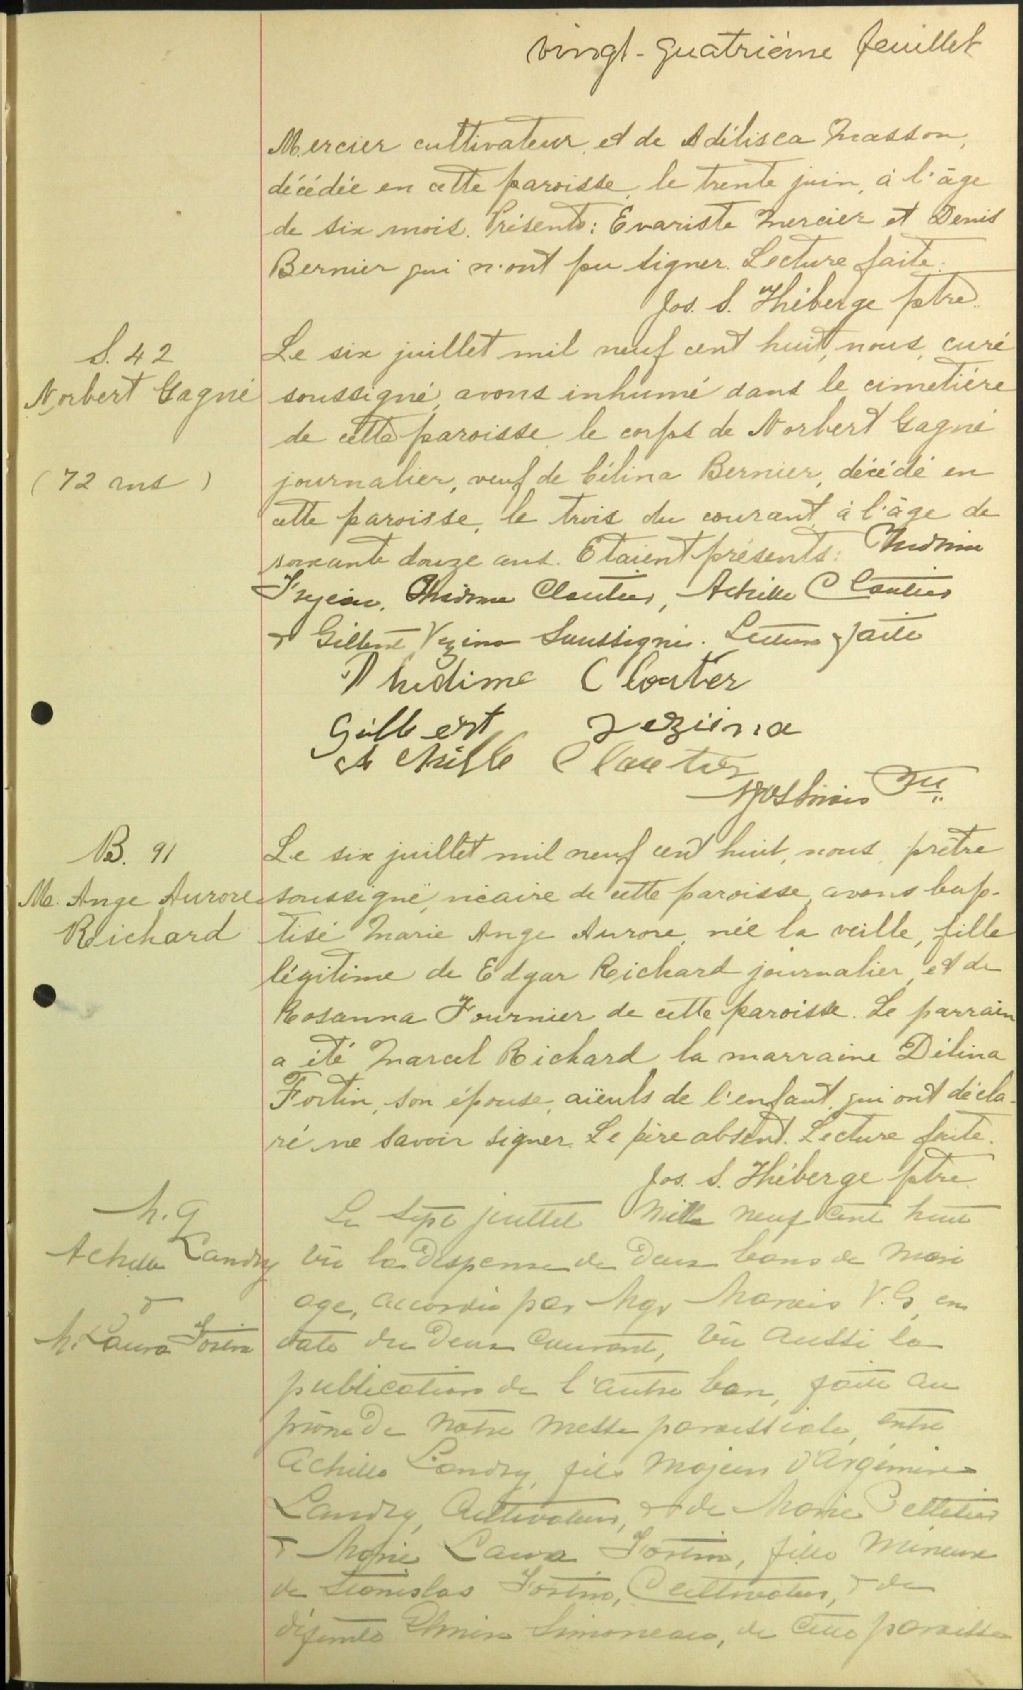 vingt-quatrième feuillet
Mercier cultivateur, et de Adélisca Masson,
décédée en cette paroisse, le trente juin, à l'âge
de six mois. Présents: Evariste Mercier et Denis
Bernier qui n'ont pu signer. Lecture faite.
Jos. S. Théberge ptre.
S. 42
Norbert Gagné
(72 ans)
Le six juillet mil neuf cent huit, nous, curé
soussigné, avons inhumé dans le cimetière
de cette paroisse, le corps de Norbert Gagné
journalier, veuf de Célina Bernier, décédé en
cette paroisse, le trois du courant, à l'âge de
soixante douze ans. Etaient présents:
Cloutier, Achille Cloutier
& Gilbert Vezina Soussignés. Lecture faite
Phidime Cloutier
Gilbert Vezina
Achille Cloutier
B. 91
M. Ange Aurore
Richard
Le six juillet mil neuf cent huit, nous, prêtre
soussigné, vicaire de cette paroisse, avons bap-
tisé Marie Ange Aurore, née la veille, fille
légitime de Edgar Richard journalier, et de
Rosanna Fournier de cette paroisse. Le parrain
a été Marcel Richard, la marraine Délina
Fortin, son épouse, aïeuls de l'enfant, qui ont décla-
ré ne savoir signer. Le père absent. Lecture faite.
Jos. S. Théberge ptre.
M. 9
Achille Landry
&
M. Laura Fortin
Le Sept juillet Mille neuf cent huit
Vu la Dispense de Deux bans de Mari
age, accordée par Mgr Marois V.G, en
date du Deux Courant, Vu aussi la
publication de l'autre ban, faite au
prône de Notre Messe paroissiale, entre
Achille Landry, fils Majeur d'Argémire
Landry, Cultivateur, & de Marie Pelletier
& Marie Laura Fortin, fille Mineure
de Stanislas Fortin, Cultivateur, & de
défunte Simoneau, de cette paroisse